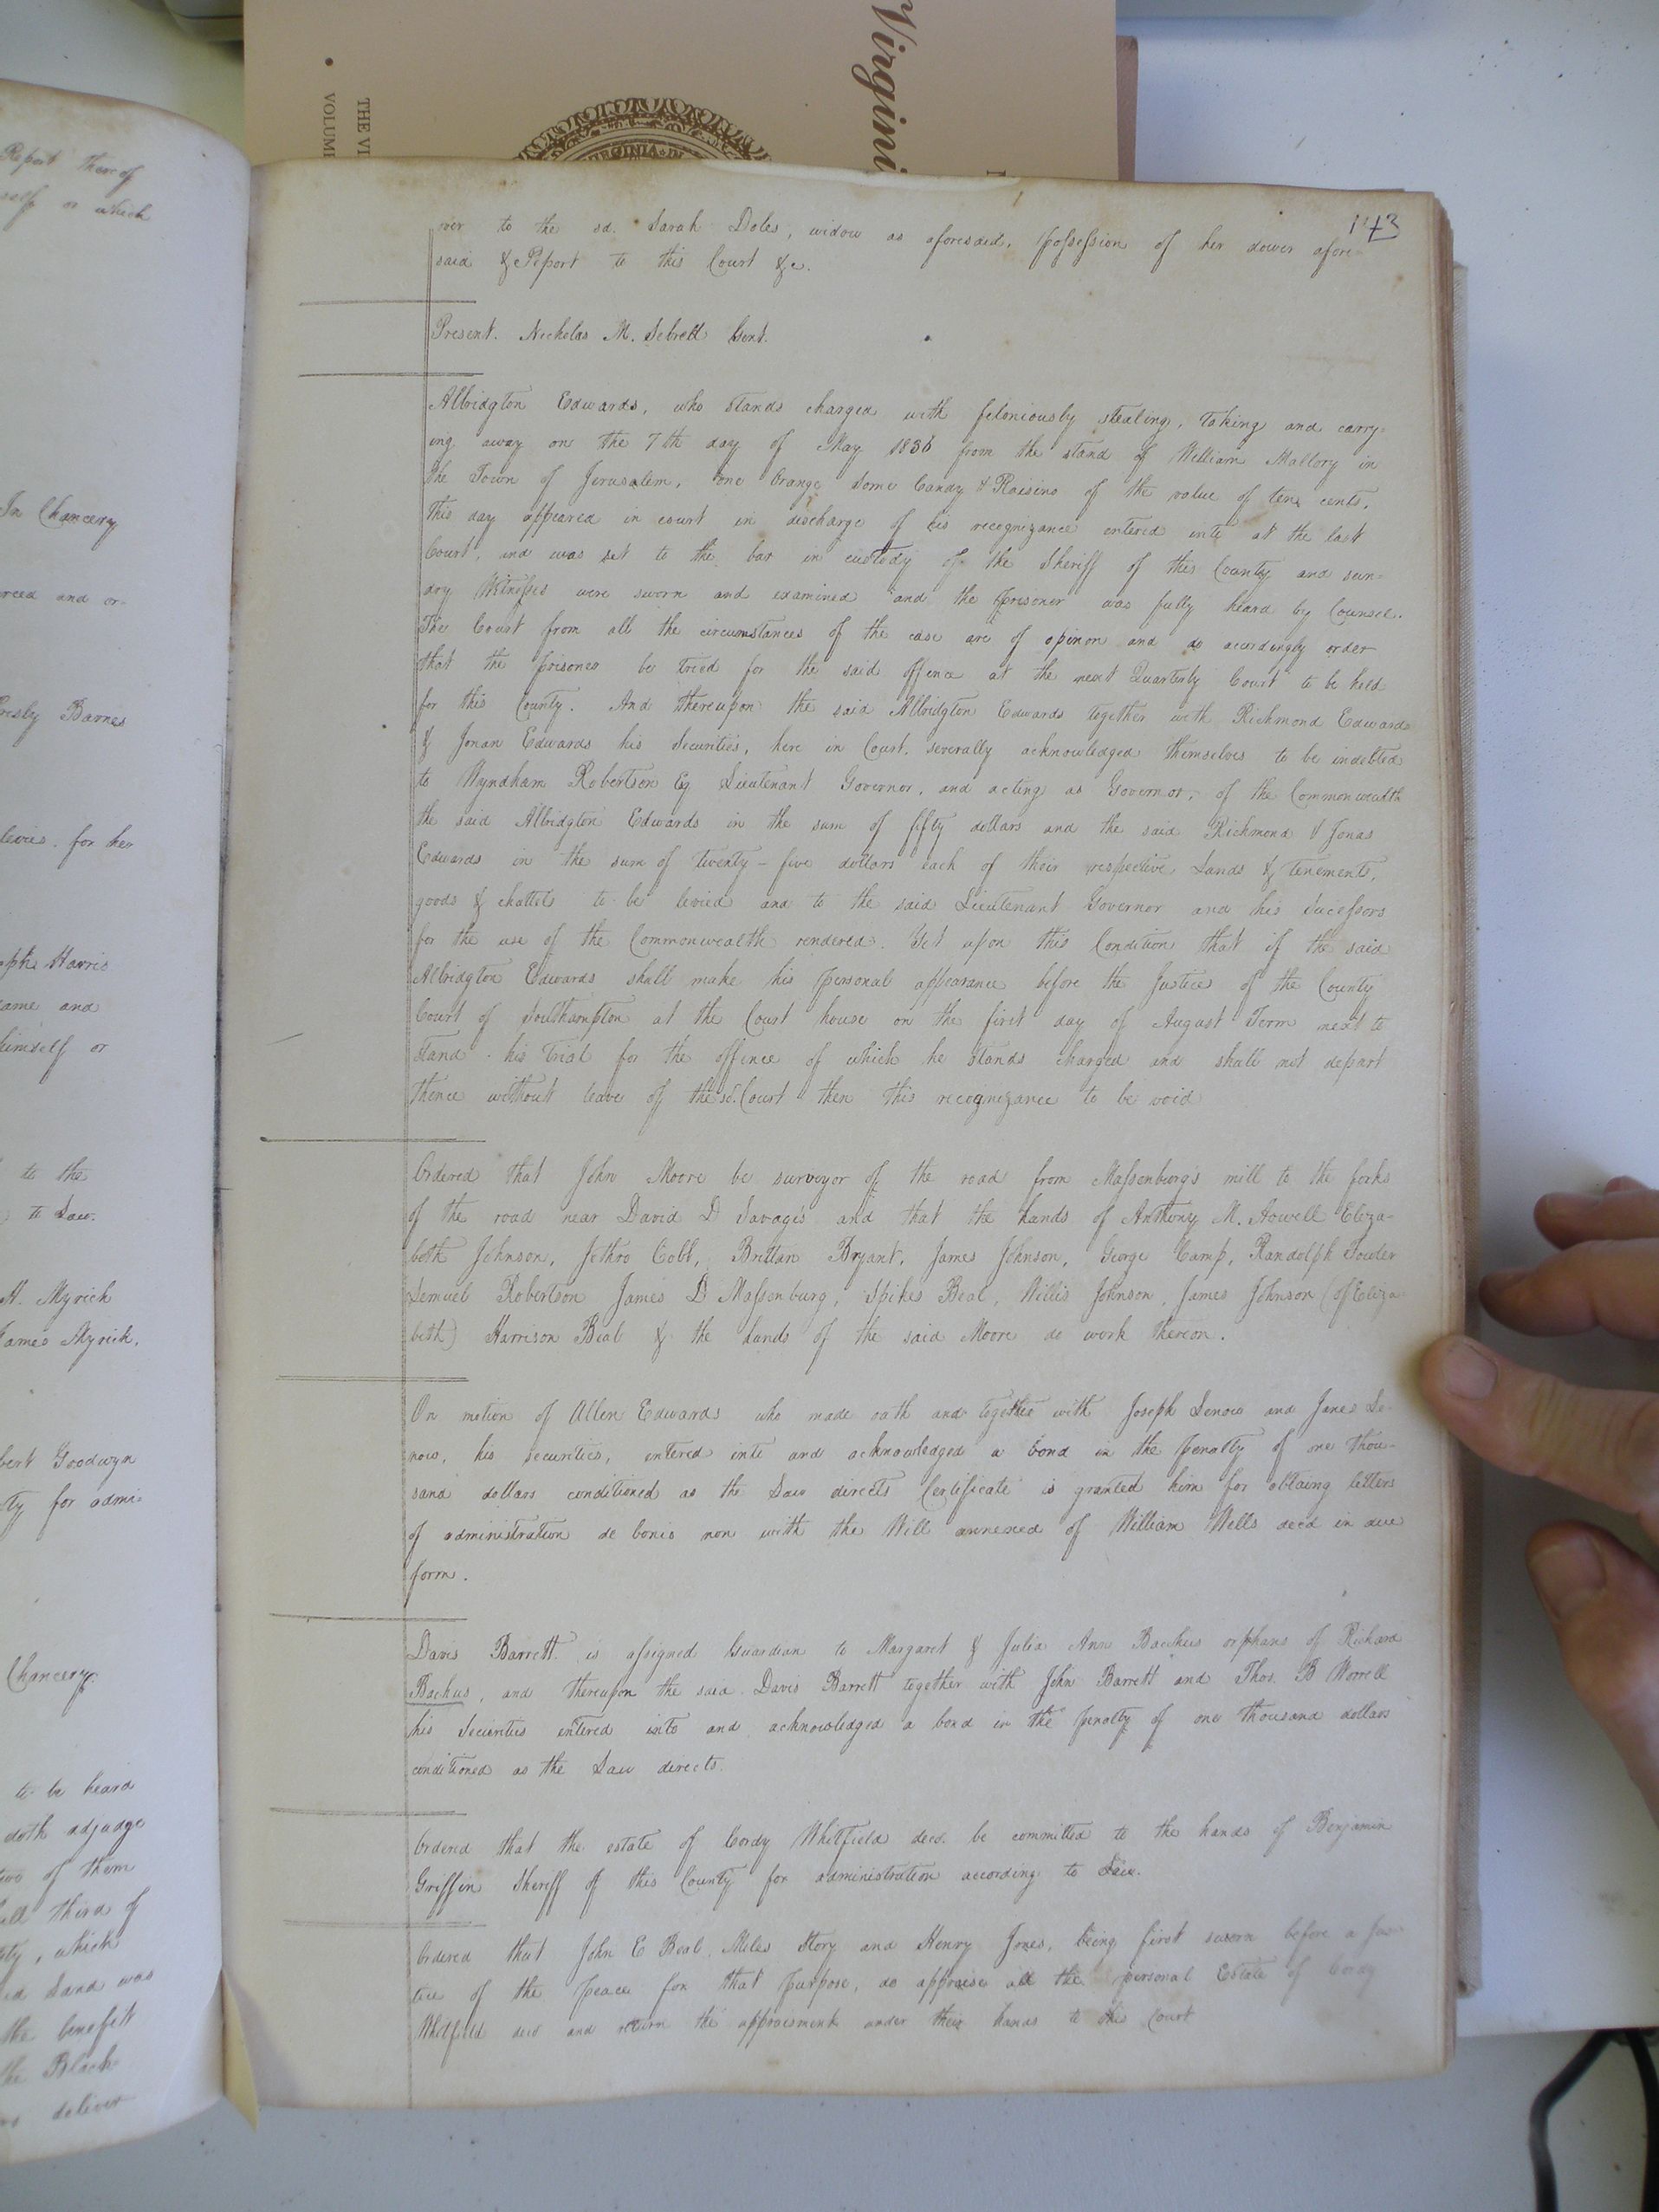 Virgini
THE VI
VOLUM
VIRGINIA
Report thereof
self or which
In Chancery
creed and or-
resby Barnes
levies. for her
oph Harris
came and
himself or
to the
to Law.
A. Myrick
James Myrick.
bert Goodwyn
ty for admi-
Chancery
to be heard
doth adjudge
two of them
third of
which
d Land was
the benefit
the Black
deliver
143
ver to the sd. Sarah Doles, widow as aforesaid, possession of her dower afore-
said & Report to this Court &c.
Present. Nicholas M. Sebrell Gent.
Albridgton Edwards, who stands charged with feloniously stealing, taking and carry-
ing away on the 7th day of May 1836 from the stand of William Mallory in
the Town of Jerusalem, one Orange some Candy & Raisins of the value of ten cents.
this day appeared in court in discharge of his recognizance entered into at the last
Court, and was set to the bar in custody of the Sheriff of this County and sun-
dry Witnesses were sworn and examined and the prisoner was fully heard by Counsel.
The Court from all the circumstances of the case are of opinon and do accordingly order
that the prisoner be tried for the said offence at the next Quarterly Court to be held
for this County. And thereupon the said Albridgton Edwards together with Richmond Edwards
& Jonan Edwards his Securities, here in Court. severally acknowledged themselves to be indebted
to Wyndham Robertson Eq Lieutenant Governor, and acting as Governor, of the Commonwealth
the said Albridgton Edwards in the sum of fifty dollars and the said Richmond & Jonas
Edwards in the sum of twenty-five dollars each of their respective Lands & tenements,
goods & chattels to be levied and to the said Lieutenant Governor and his Sucessors
for the use of the Commonwealth rendered. Yet upon this Condition that if the said
Albridgton Edwards shall make his personal appearance before the Justices of the County
Court of Southampton at the Court house on the first day of August Term next to
stand his trial for the offence of which he stands charged and shall not depart
thence without leave of the sd. Court then this recognizance to be void
Ordered that John Moore be surveyor of the road from Massenburg's mill to the forks
of the road near David D Savage's and that the hands of Anthony M. Howell Eliza-
beth Johnson, Jethro Cobb, Brittan Bryant, James Johnson, George Camp, Randolph Fowler
Lemuel Robertson James D Massenburg, Spikes Beal, Willis Johnson, James Johnson (of Eliza-
beth) Harrison Beal & the hands of the said Moore do work thereon.
On motion of Allen Edwards who made oath and together with Joseph Lenow and James Le-
now, his securities, entered into and acknowledged a bond in the penalty of one thou-
sand dollars conditioned as the Law directs Certificate is granted him for obtaing letters
of administration de bonis non with the Will annexed of William Wells decd in due
form.
Davis Barrett is assigned Guardian to Margaret & Julia Ann Bacchus orphans of Richard
Bachus, and thereupon the said Davis Barrett together with John Barrett and Thos. B Worrell
his Securities entered into and acknowledged a bond in the penalty of one thousand dollars
conditioned as the Law directs.
Ordered that the estate of Cordy Whitfield decd. be committed to the hands of Benjamin
Griffin Sheriff of this County for administration according to Law.
Ordered that John E Beal, Miles Story and Henry Jones, being first sworn before a Jus-
tice of the peace for that purpose, do appraise all the personal Estate of Cordy
Whitfield decd and return the appraisment under their hands to this Court